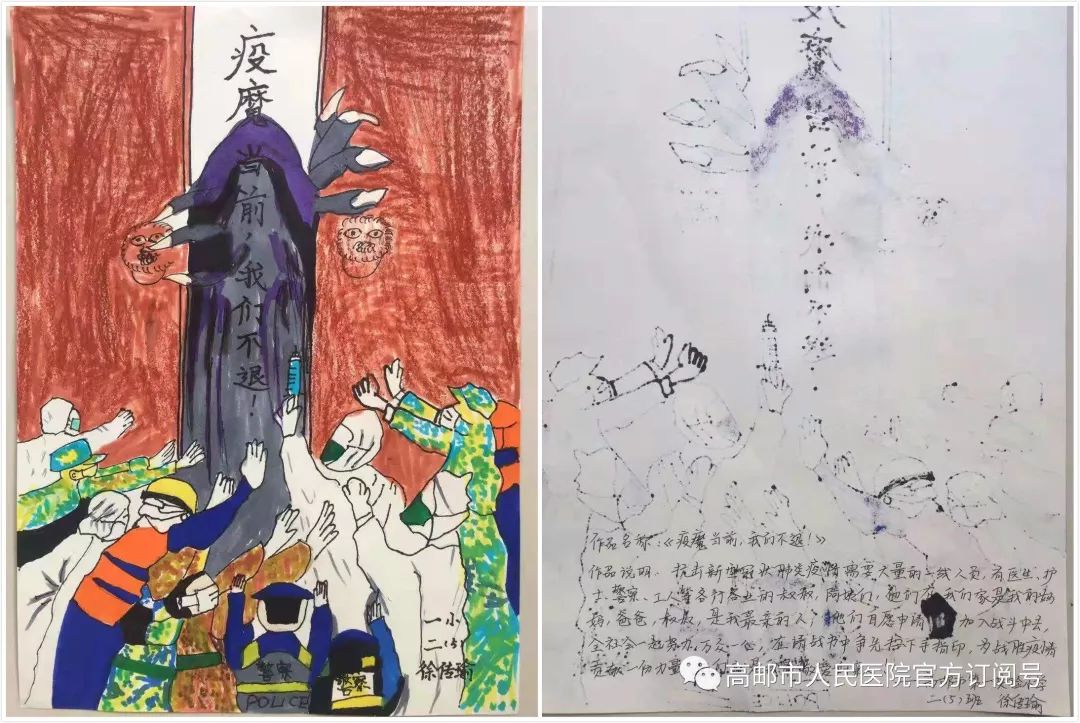 疫
魔
当
前，
我
们
不
退！
一小
二(5)
徐传瑜
警察
POLICE
警察
作品名称：《疫魔当前，我们不退！》
作品说明：抗击新型冠状肺炎疫情需要大量的一线人员，有医生、护
士、警察、工人等各行各业的叔叔、阿姨们，他们在我们家是我的妈
妈、爸爸、叔叔，是我最亲的人，他们自愿申请 加入战斗中去，
全社会一起努力，万众一心，在请战书中争先按下手指印，为战胜疫情
贡献一份力
高邮市人民医院官方订阅号
二(5)班 徐传瑜